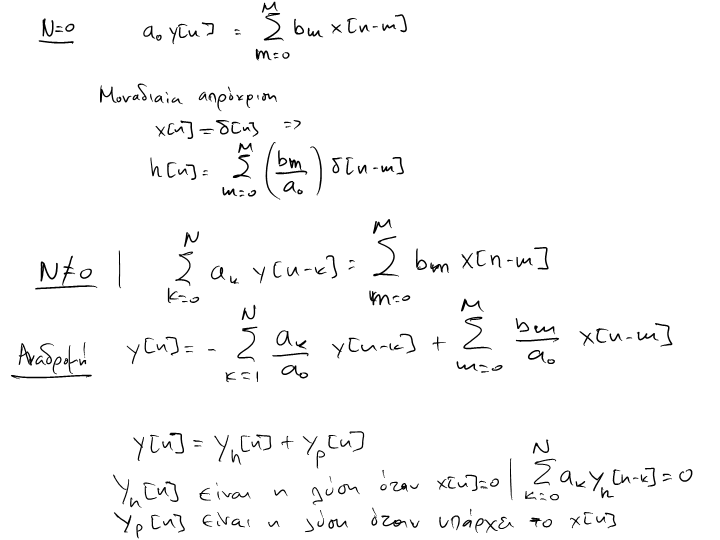 N=0 a₀ y[n] = ∑_{m=0}^{M} bm x[n-m]
Μοναδιαία απόκριση
x[n] = δ[n] =>
h[n] = ∑_{m=0}^{M} (bm/a₀) δ[n-m]
N≠0 | ∑_{k=0}^{N} aₖ y[n-k] = ∑_{m=0}^{M} bm x[n-m]
Αναδρομή y[n] = - ∑_{k=1}^{N} aₖ/a₀ y[n-k] + ∑_{m=0}^{M} bm/a₀ x[n-m]
y[n] = y_h[n] + y_p[n]
y_h[n] είναι η λύση όταν x[n]=0 | ∑_{k=0}^{N} aₖ y_h[n-k] = 0
y_p[n] είναι η λύση όταν υπάρχει το x[n]